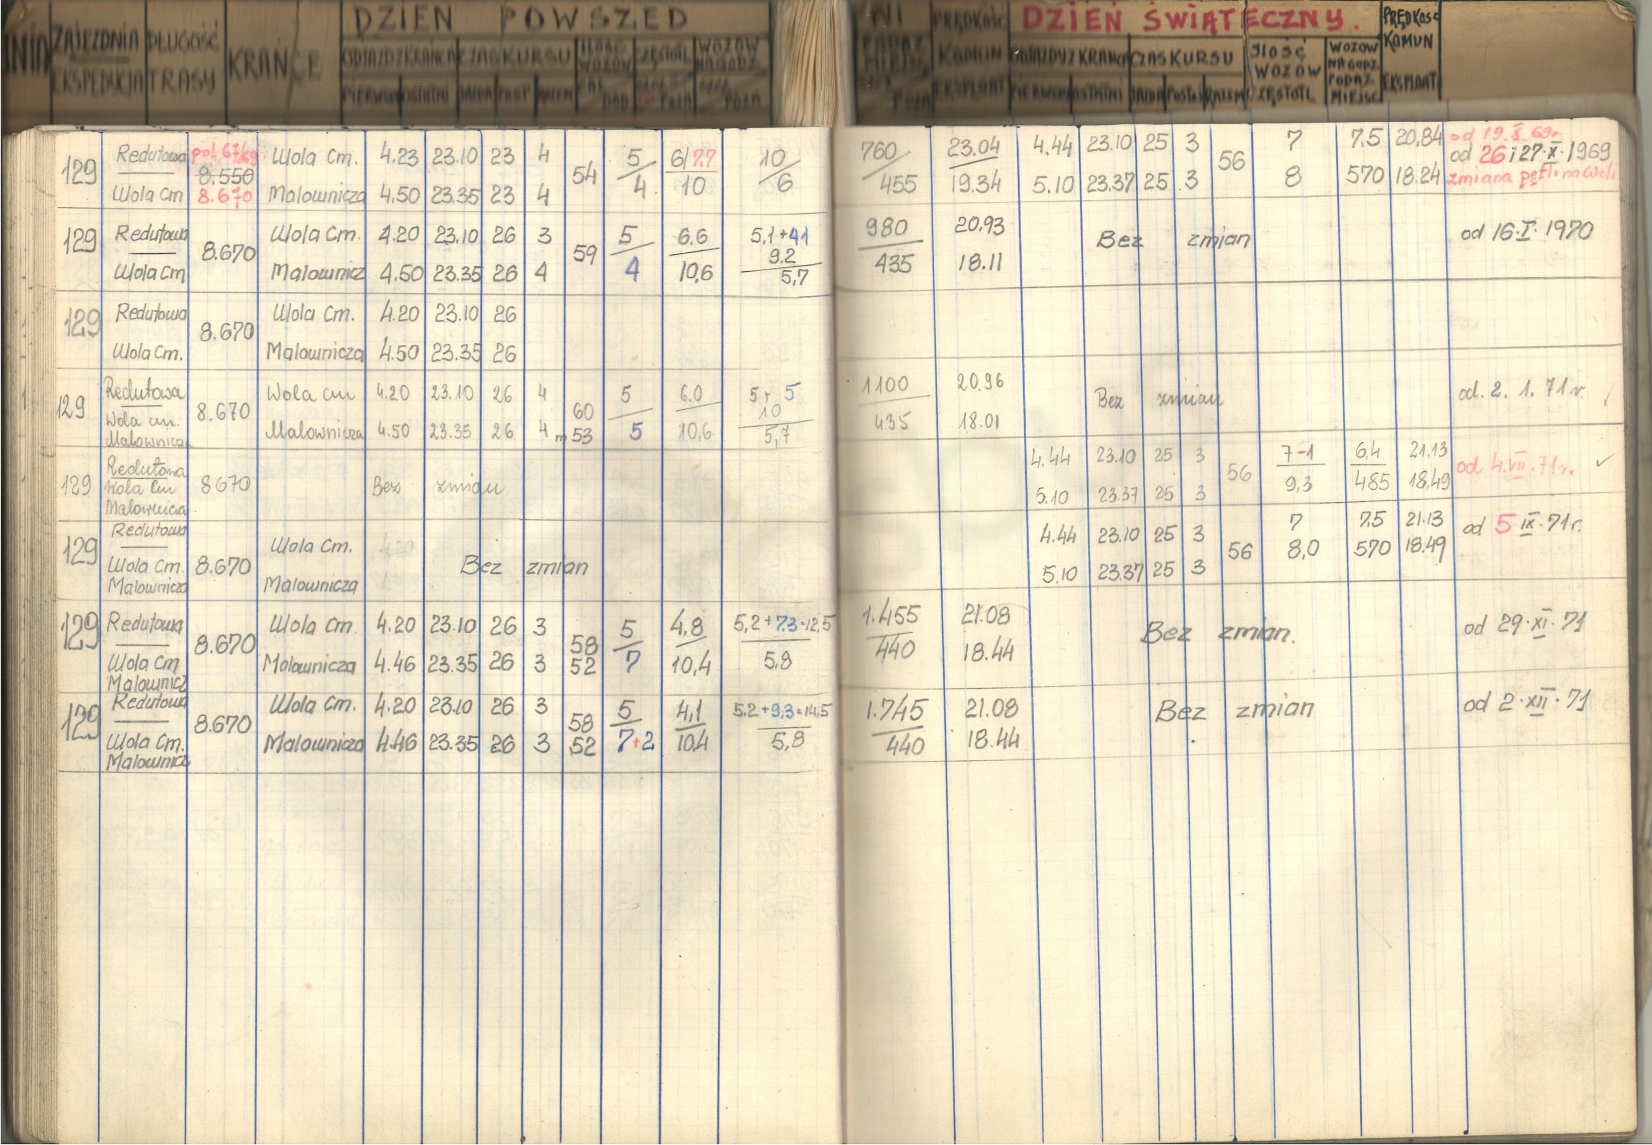 DZIEŃ POWSZED
NI
DZIEŃ ŚWIĄTECZNY.
NIA ZAJEZDNIA EKSPEDYCJA DŁUGOŚĆ TRASY KRAŃCE
ODJAZD Z KRAŃCA CZAS KURSU
PIERWSZY OSTATNI JAZDA POST RAZEM
ILOŚĆ WOZÓW
PRĘDKOŚĆ KOMUN EKSPLOAT
ODJAZDY Z KRAŃCA CZAS KURSU
PIERWSZY OSTATNI JAZDA POSTÓJ RAZEM
ILOŚĆ WOZÓW CZĘSTOTL
WOZÓW NA GODZ PODAŻ MIEJSC
PRĘDKOŚĆ KOMUN EKSPLOAT
129 Redutowa Wola Cm. 4.23 23.10 23 4 54 5 6/7,7 10 760 23.04 4.44 23.10 25 3 56 7 7.5 20,84 od 19.8.69r.
8.550 od 26 i 27.X.1969
Wola Cm 8.670 Malownicza 4.50 23.35 23 4 4 10 6 455 19.34 5.10 23.37 25 3 8 570 18.24 zmiana pętli na Woli
129 Redutowa 8.670 Wola Cm. 4.20 23.10 26 3 59 5 6.6 5,1+41 980 20.93 Bez zmian od 16.I.1970
9.2
Wola Cm Malownicz 4.50 23.35 26 4 4 10,6 5,7 435 18.11
129 Redutowa 8.670 Wola Cm. 4.20 23.10 26
Wola Cm. Malownicza 4.50 23.35 26
129 Redutowa 8.670 Wola cm 4.20 23.10 26 4 60 5 6.0 5+5 1100 20.96 Bez zmian od. 2. 1. 71 r.
10
Wola cm. Malownicza 4.50 23.35 26 4 m 53 5 10,6 5,7 435 18.01
Malownicza
129 Redutowa 8670 Bez zmian 4.44 23.10 25 3 56 7-1 6,4 21.13 od 4.VII.71r.
Wola Cm 5.10 23.37 25 3 9,3 485 18,49
Malownicza
129 Redutowa 8.670 Wola Cm. Bez zmian 4.44 23.10 25 3 56 7 7.5 21.13 od 5 IX.71r.
Wola Cm. Malownicza 5.10 23.37 25 3 8,0 570 18.49
Malownicza
129 Redutowa 8.670 Wola Cm. 4.20 23.10 26 3 58 5 4,8 5,2+7.3=12,5 1.455 21.08 Bez zmian. od 29.XI.71
Wola Cm Malownicza 4.46 23.35 26 3 52 7 10,4 5,8 440 18.44
Malownicz
129 Redutowa 8.670 Wola Cm. 4.20 23.10 26 3 58 5 4,1 5.2+9,3=14,5 1.745 21.08 Bez zmian od 2.XII.71
Wola Cm. Malownicza 4.46 23.35 26 3 52 7+2 10,4 5,8 440 18.44
Malownicz